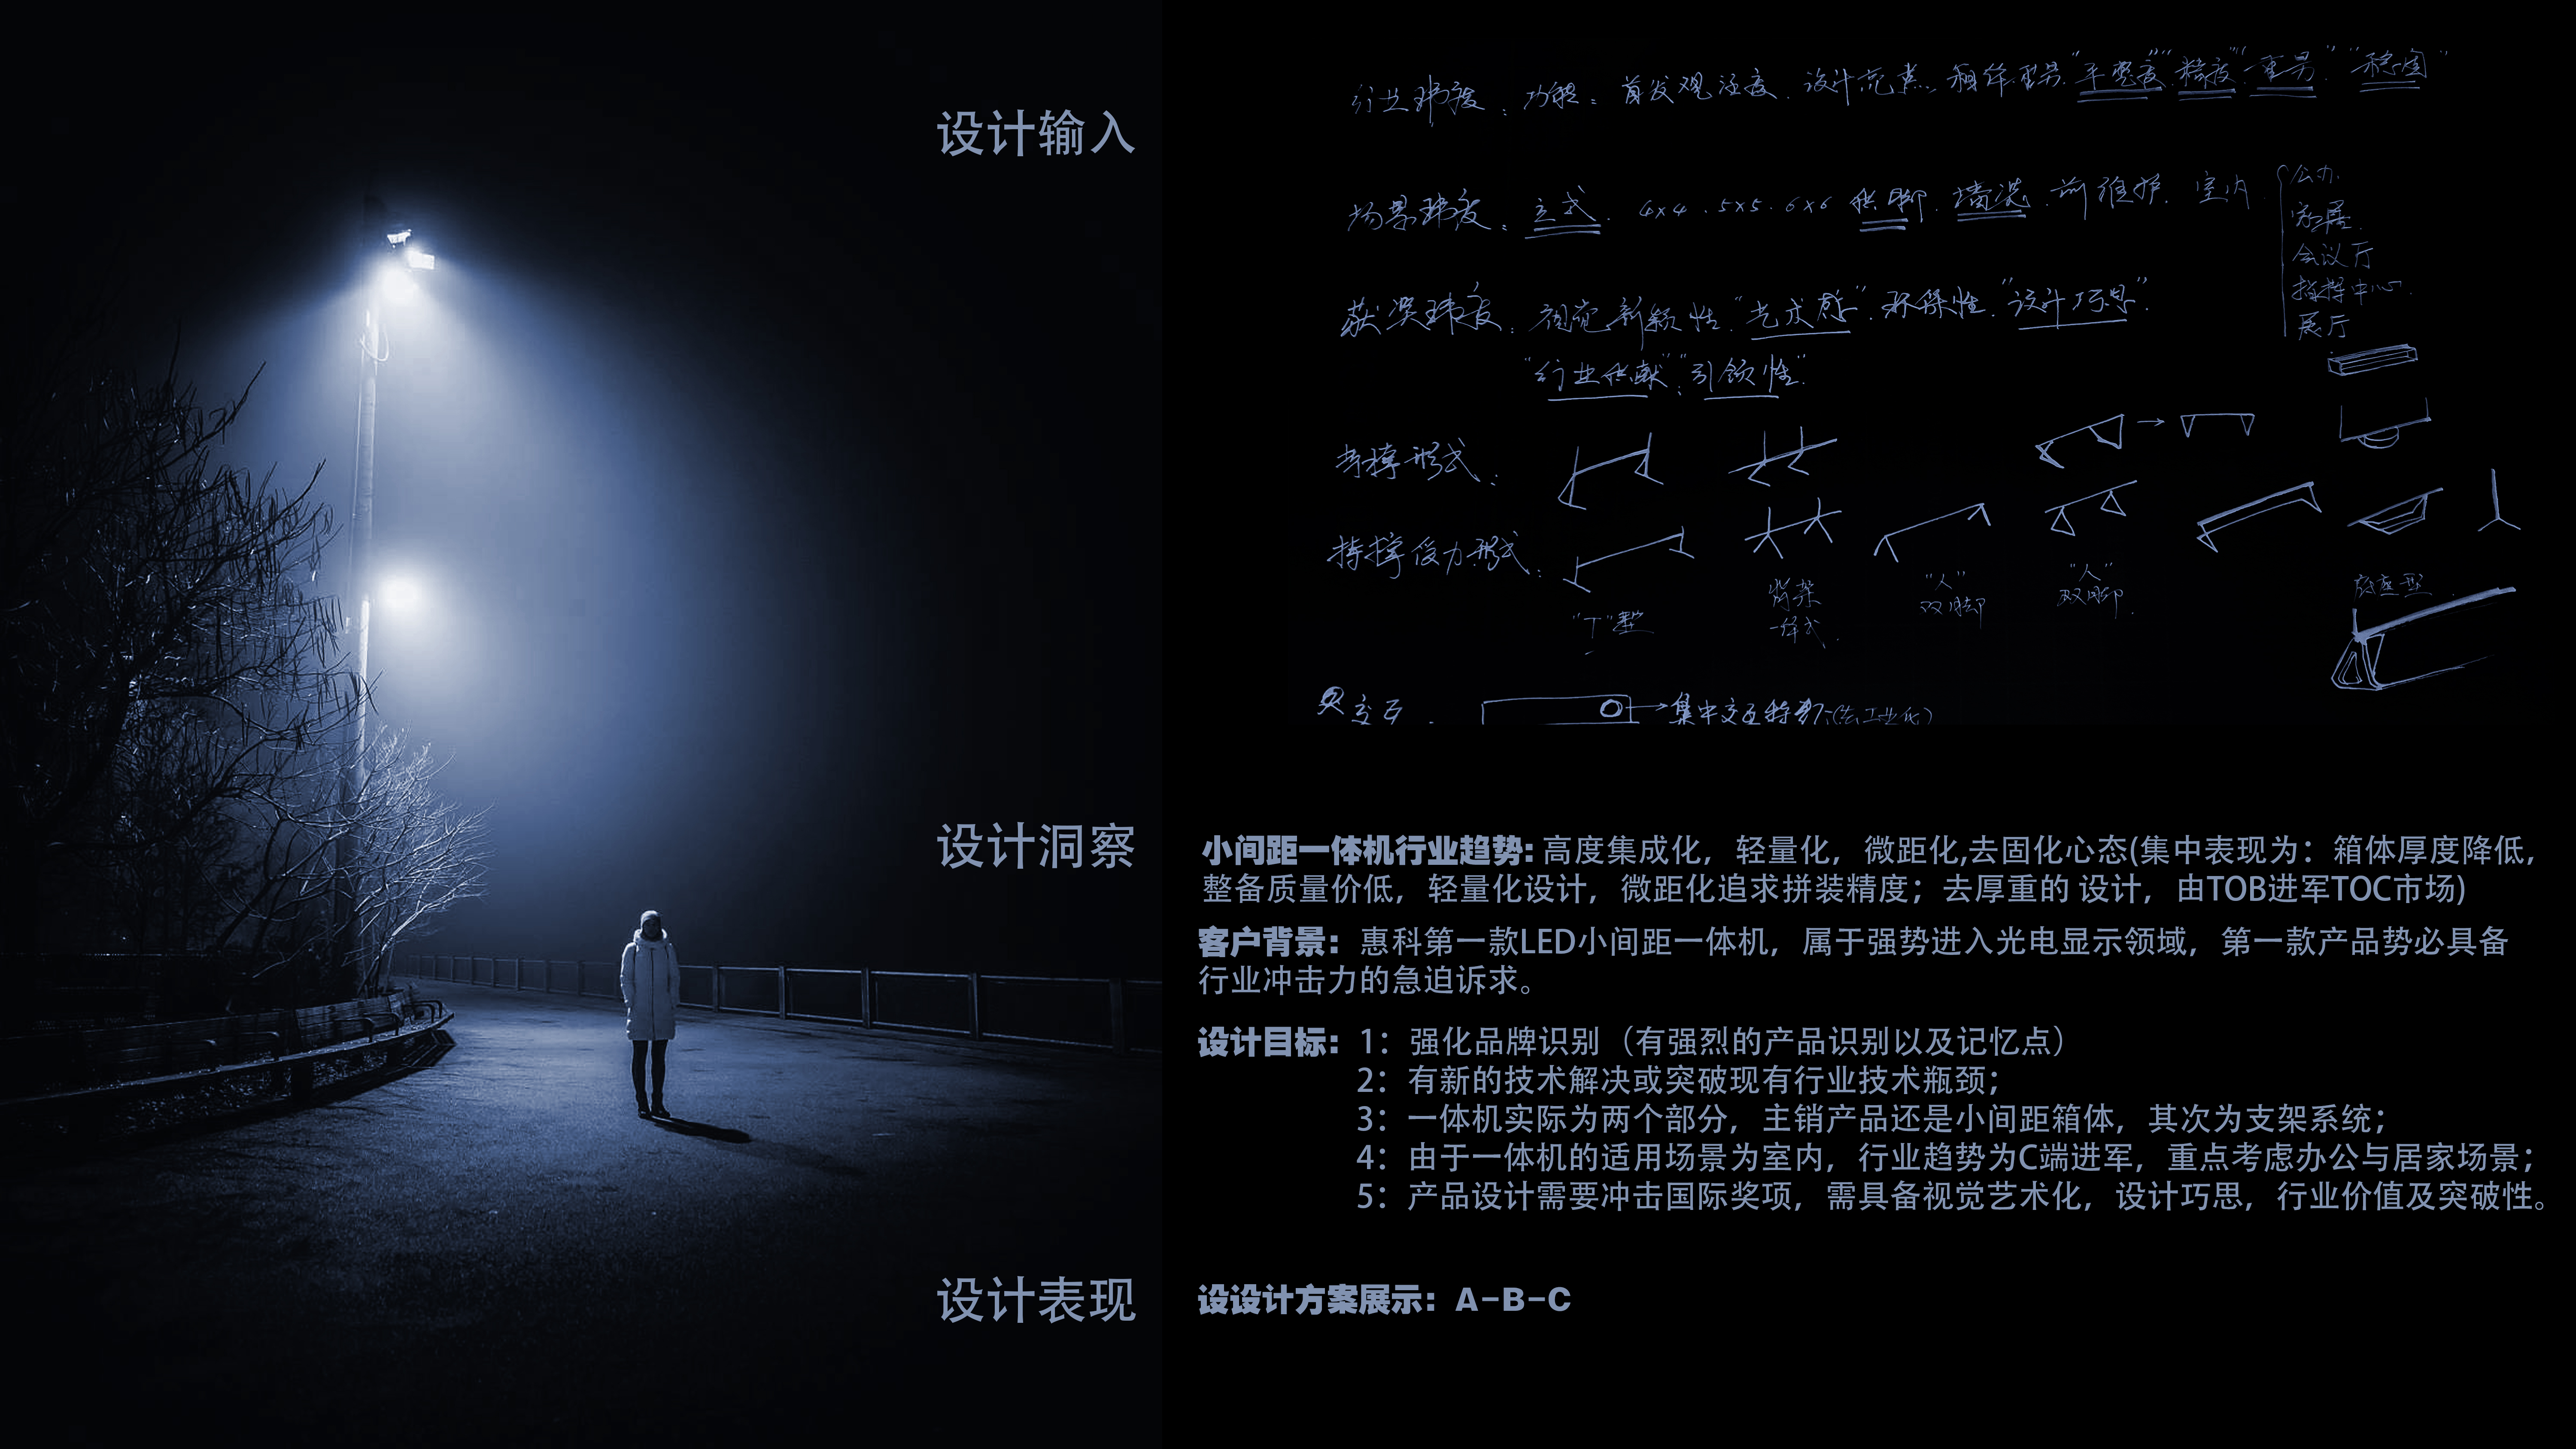 设计输入
行业玮度：功能：首发观注度.设计亮点.箱体重另."平整度""精度""重另""稳固"
场景玮度：立式.4×4.5×5.6×6 供脚.墙装.前维护.室内.
公办.
家居.
会议厅
指挥中心.
展厅
获奖玮度：视觉新颖性."艺术感".环保性."设计巧思".
"行业供献"."引领性".
支撑形式：
撑受力形式：
"T"型
背架
一体式.
"人"
双脚
"人"
双脚.
底座型.
交互.
集中交互特
设计洞察
小间距一体机行业趋势: 高度集成化，轻量化，微距化,去固化心态(集中表现为：箱体厚度降低，
整备质量价低，轻量化设计，微距化追求拼装精度；去厚重的 设计，由TOB进军TOC市场)
客户背景：惠科第一款LED小间距一体机，属于强势进入光电显示领域，第一款产品势必具备
行业冲击力的急迫诉求。
设计目标：1：强化品牌识别（有强烈的产品识别以及记忆点）
2：有新的技术解决或突破现有行业技术瓶颈；
3：一体机实际为两个部分，主销产品还是小间距箱体，其次为支架系统；
4：由于一体机的适用场景为室内，行业趋势为C端进军，重点考虑办公与居家场景；
5：产品设计需要冲击国际奖项，需具备视觉艺术化，设计巧思，行业价值及突破性。
设计表现
设设计方案展示：A-B-C